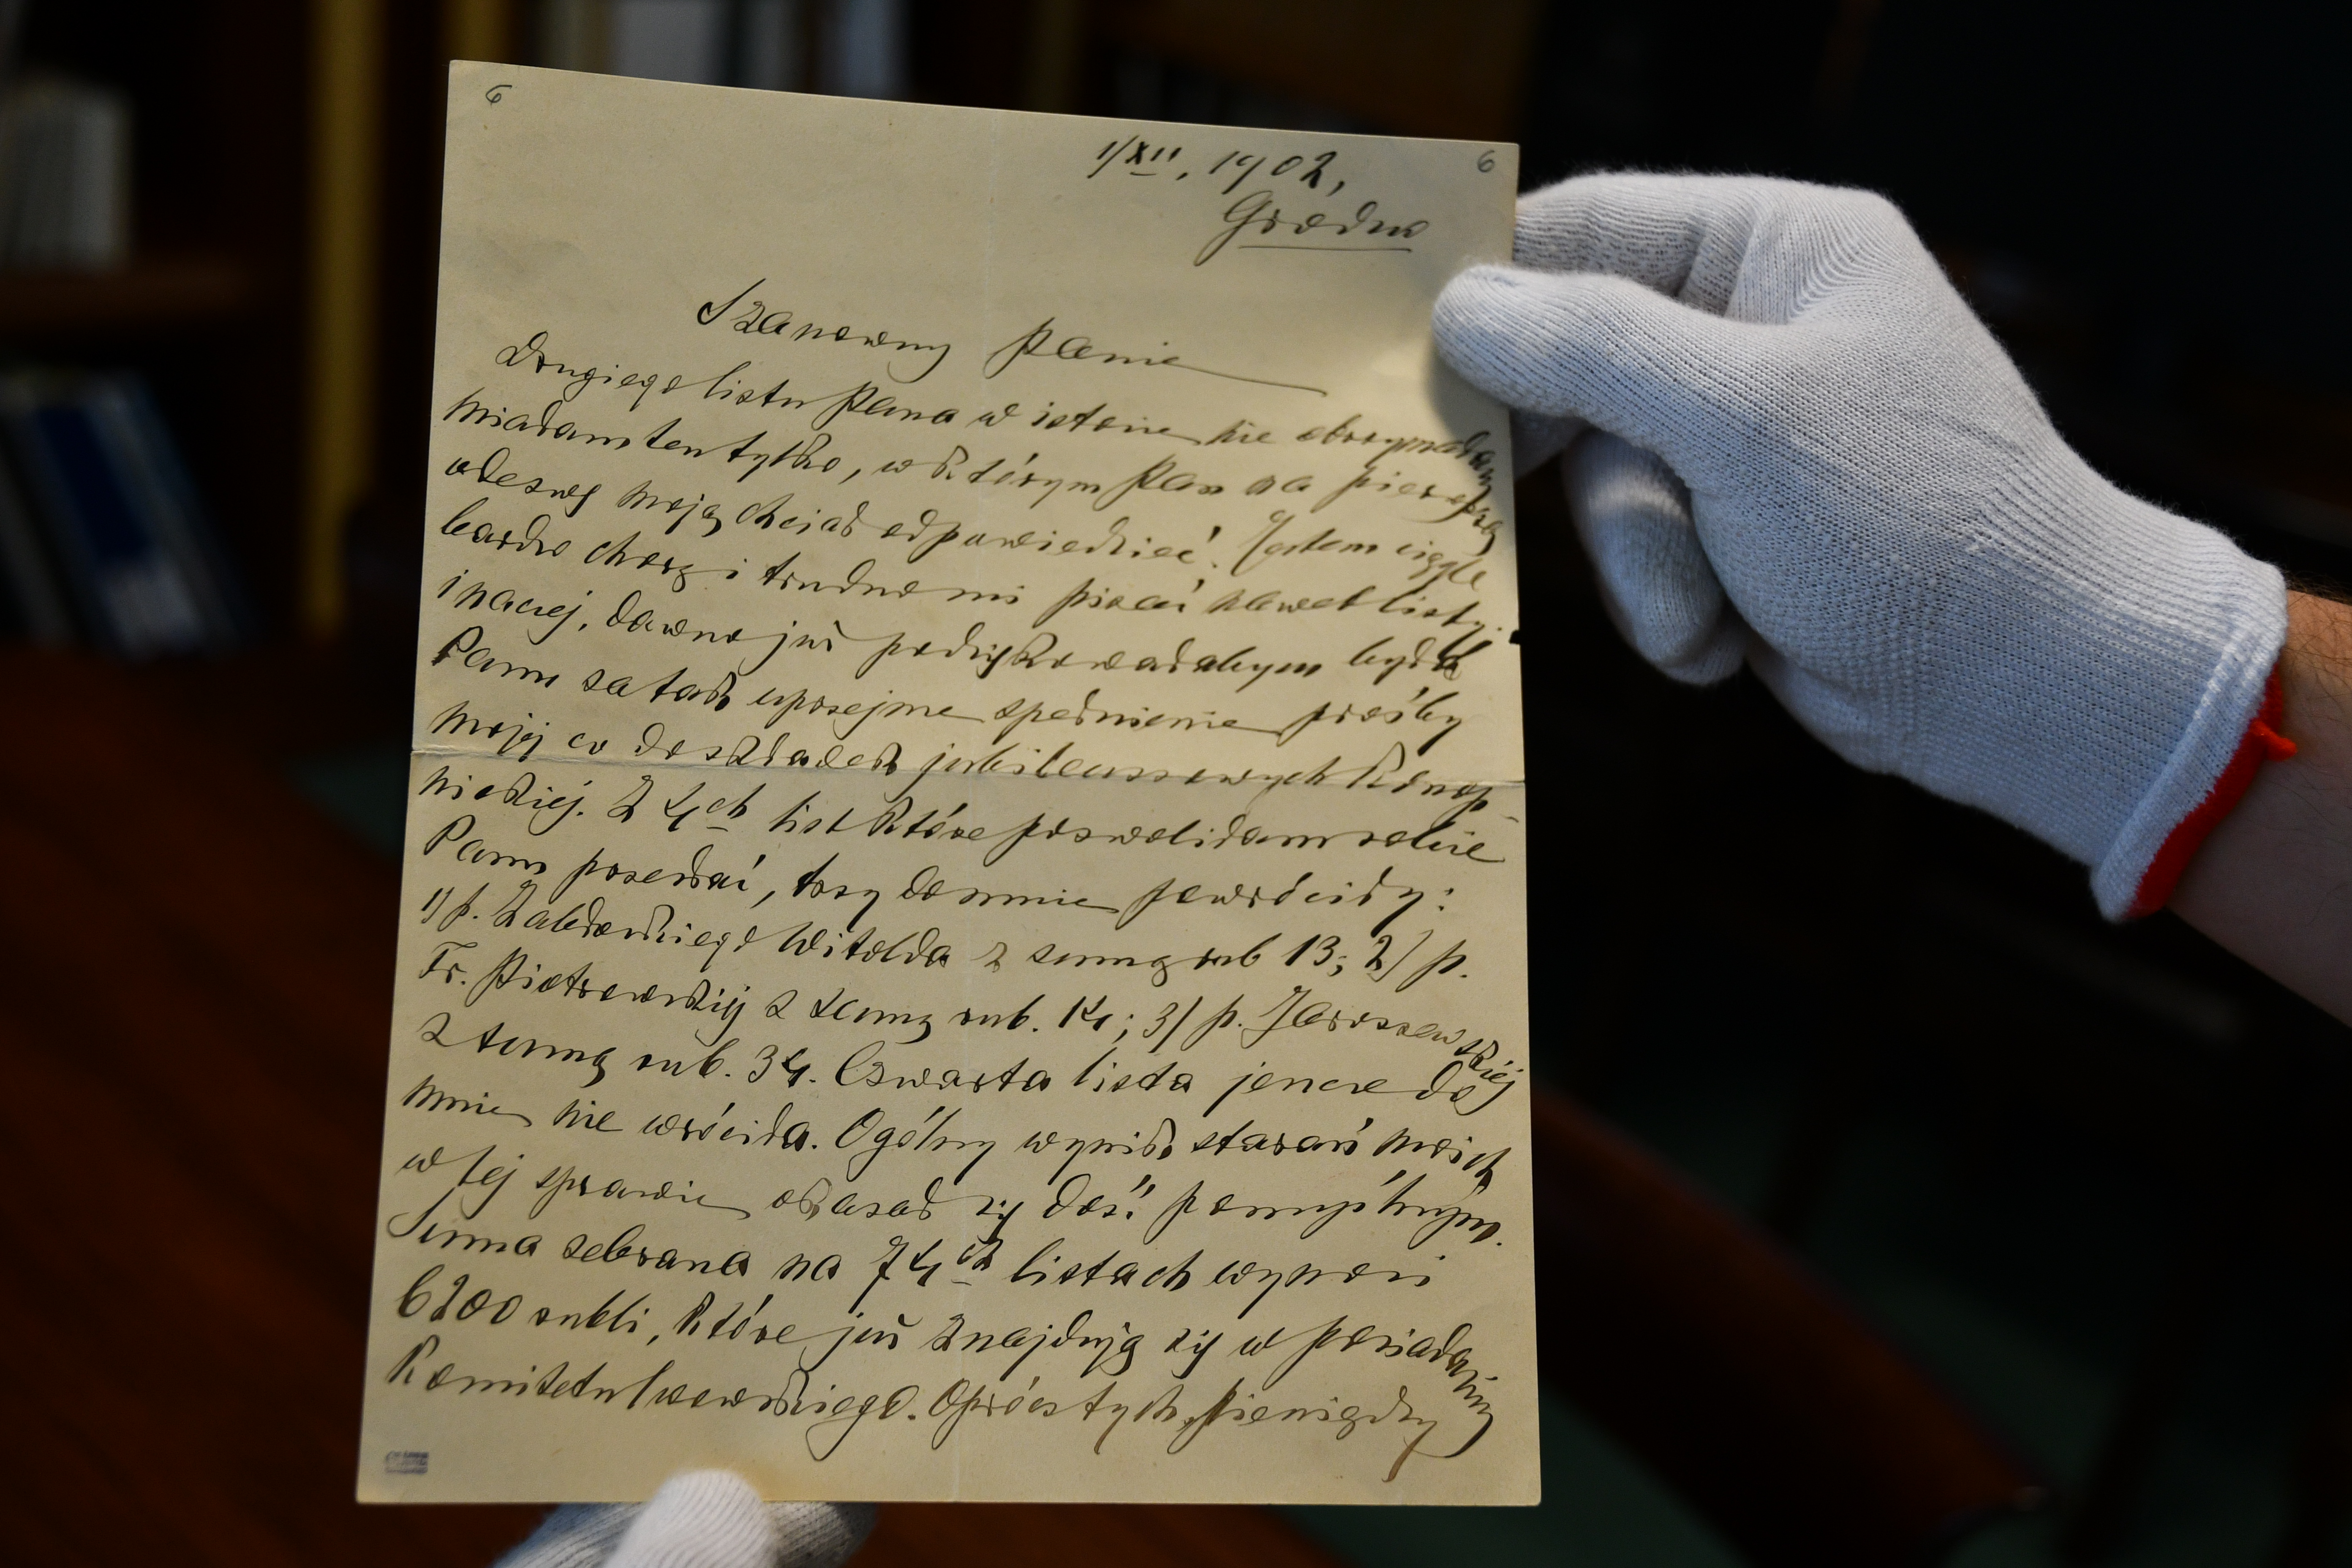 6
6
1/XII, 1902,
Grodno
Szanowny Panie
Drugiego listu Pana w istocie nie otrzymałam
miałam ten tylko, w którym Pan na pierwszą
odezwę moją chciał odpowiedzieć. Jestem ciągle
bardzo chorą i trudno mi pisać nawet listy.
inaczej, dawno już podziękowałabym była
Panu za tak uprzejme spełnienie prośby
mojej co do składek jubileuszowych Konop-
nickiej. Z 4ch list które pozwoliłam sobie
Panu przesłać, trzy do mnie powróciły:
1) p. Zabłockiego Witolda z sumą rub 13; 2) p.
Fr. Piotrowskiej z sumą rub. 14; 3) p. Jaroszewskiej
z sumą rub. 34. Czwarta lista jeszcze do
mnie nie wróciła. Ogólny wynik starań moich
w tej sprawie okazał się dość pomyślnym.
Suma zebrana na 74ch listach wynosi
6200 rubli, które już znajdują się w posiadaniu
Komitetu lwowskiego. Oprócz tych pieniędzy